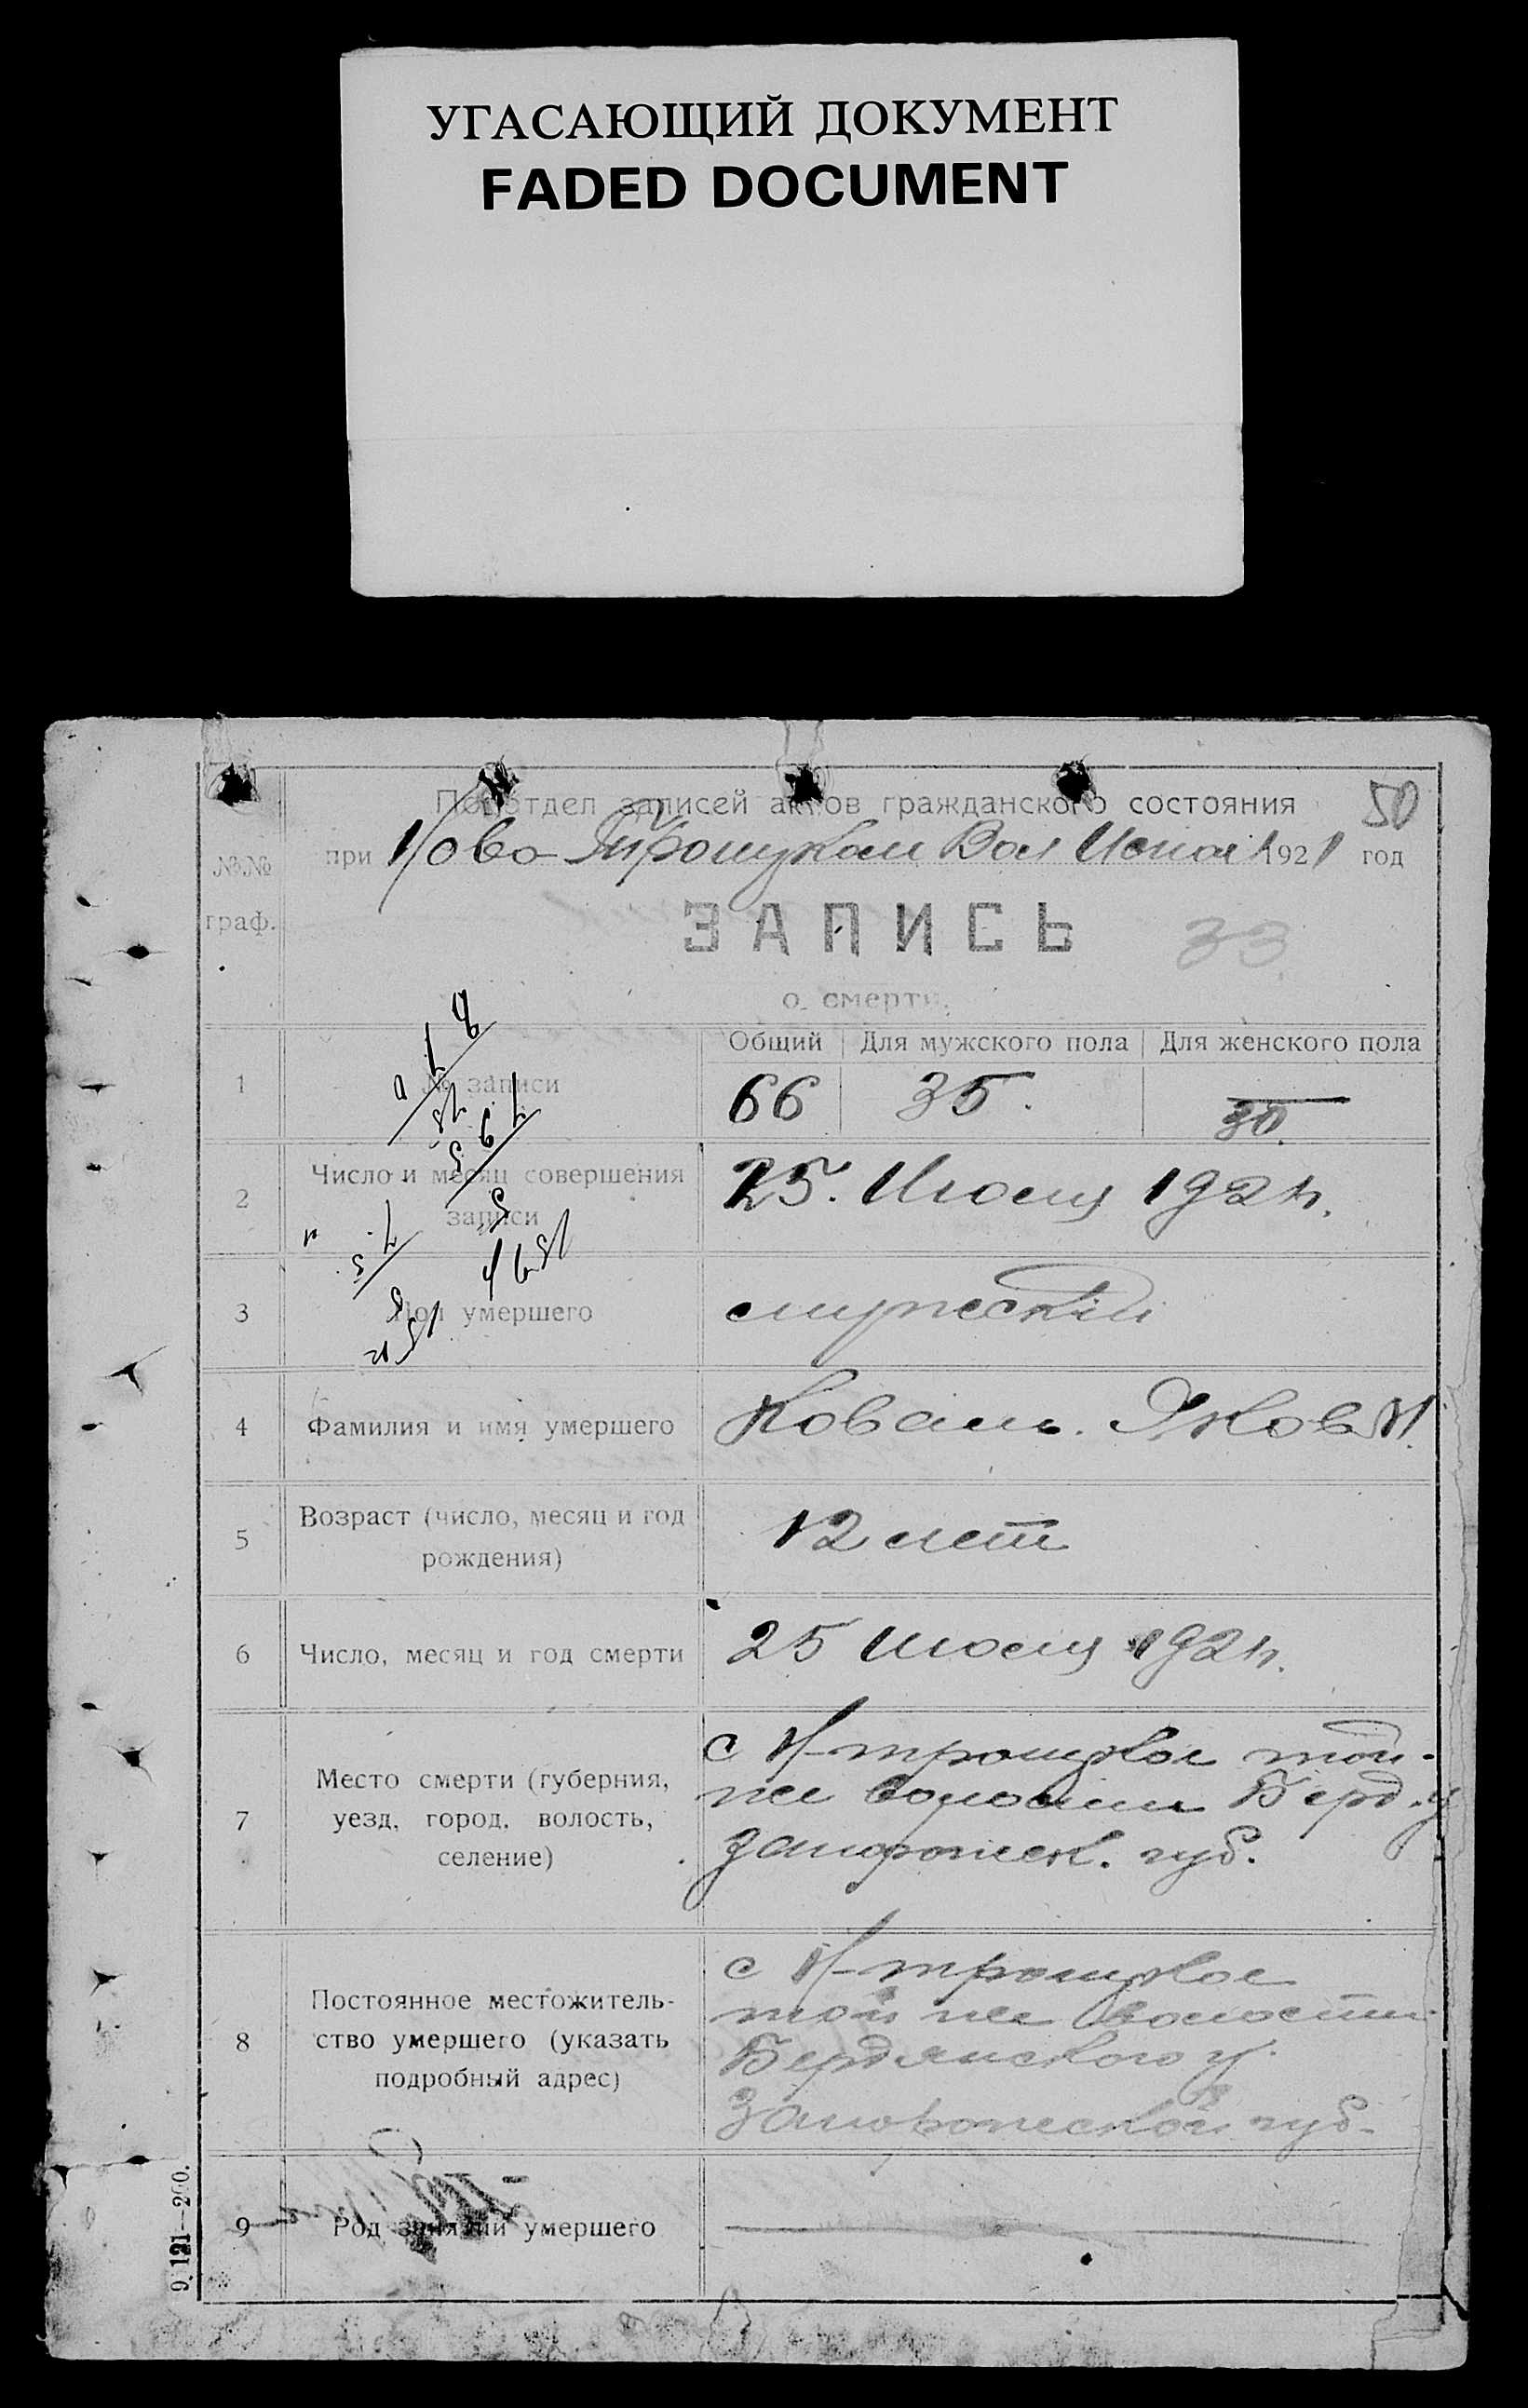 УГАСАЮЩИЙ ДОКУМЕНТ
FADED DOCUMENT
50
Подотдел записей актов гражданского состояния
№№
граф.
при Ново-Троицком Вол Испол 1921 год
ЗАПИСЬ
33
о смерти.
Общий Для мужского пола Для женского пола
1 № записи 66 35. 30.
2 Число и месяц совершения
записи 25. Июля 1921 г.
3 Пол умершего мужеский
4 Фамилия и имя умершего Коваль. Яков И.
5 Возраст (число, месяц и год
рождения) 12 лет
6 Число, месяц и год смерти 25 июля 1921 г.
7 Место смерти (губерния,
уезд, город, волость,
селение)
с Н-троицкое той-
же волости Берд. у
Запорожск. губ.
8 Постоянное местожитель-
ство умершего (указать
подробный адрес)
с Н-троицкое
той же волости
Бердянского у.
Запорожской губ.
9 Род занятий умершего
9.121—200.